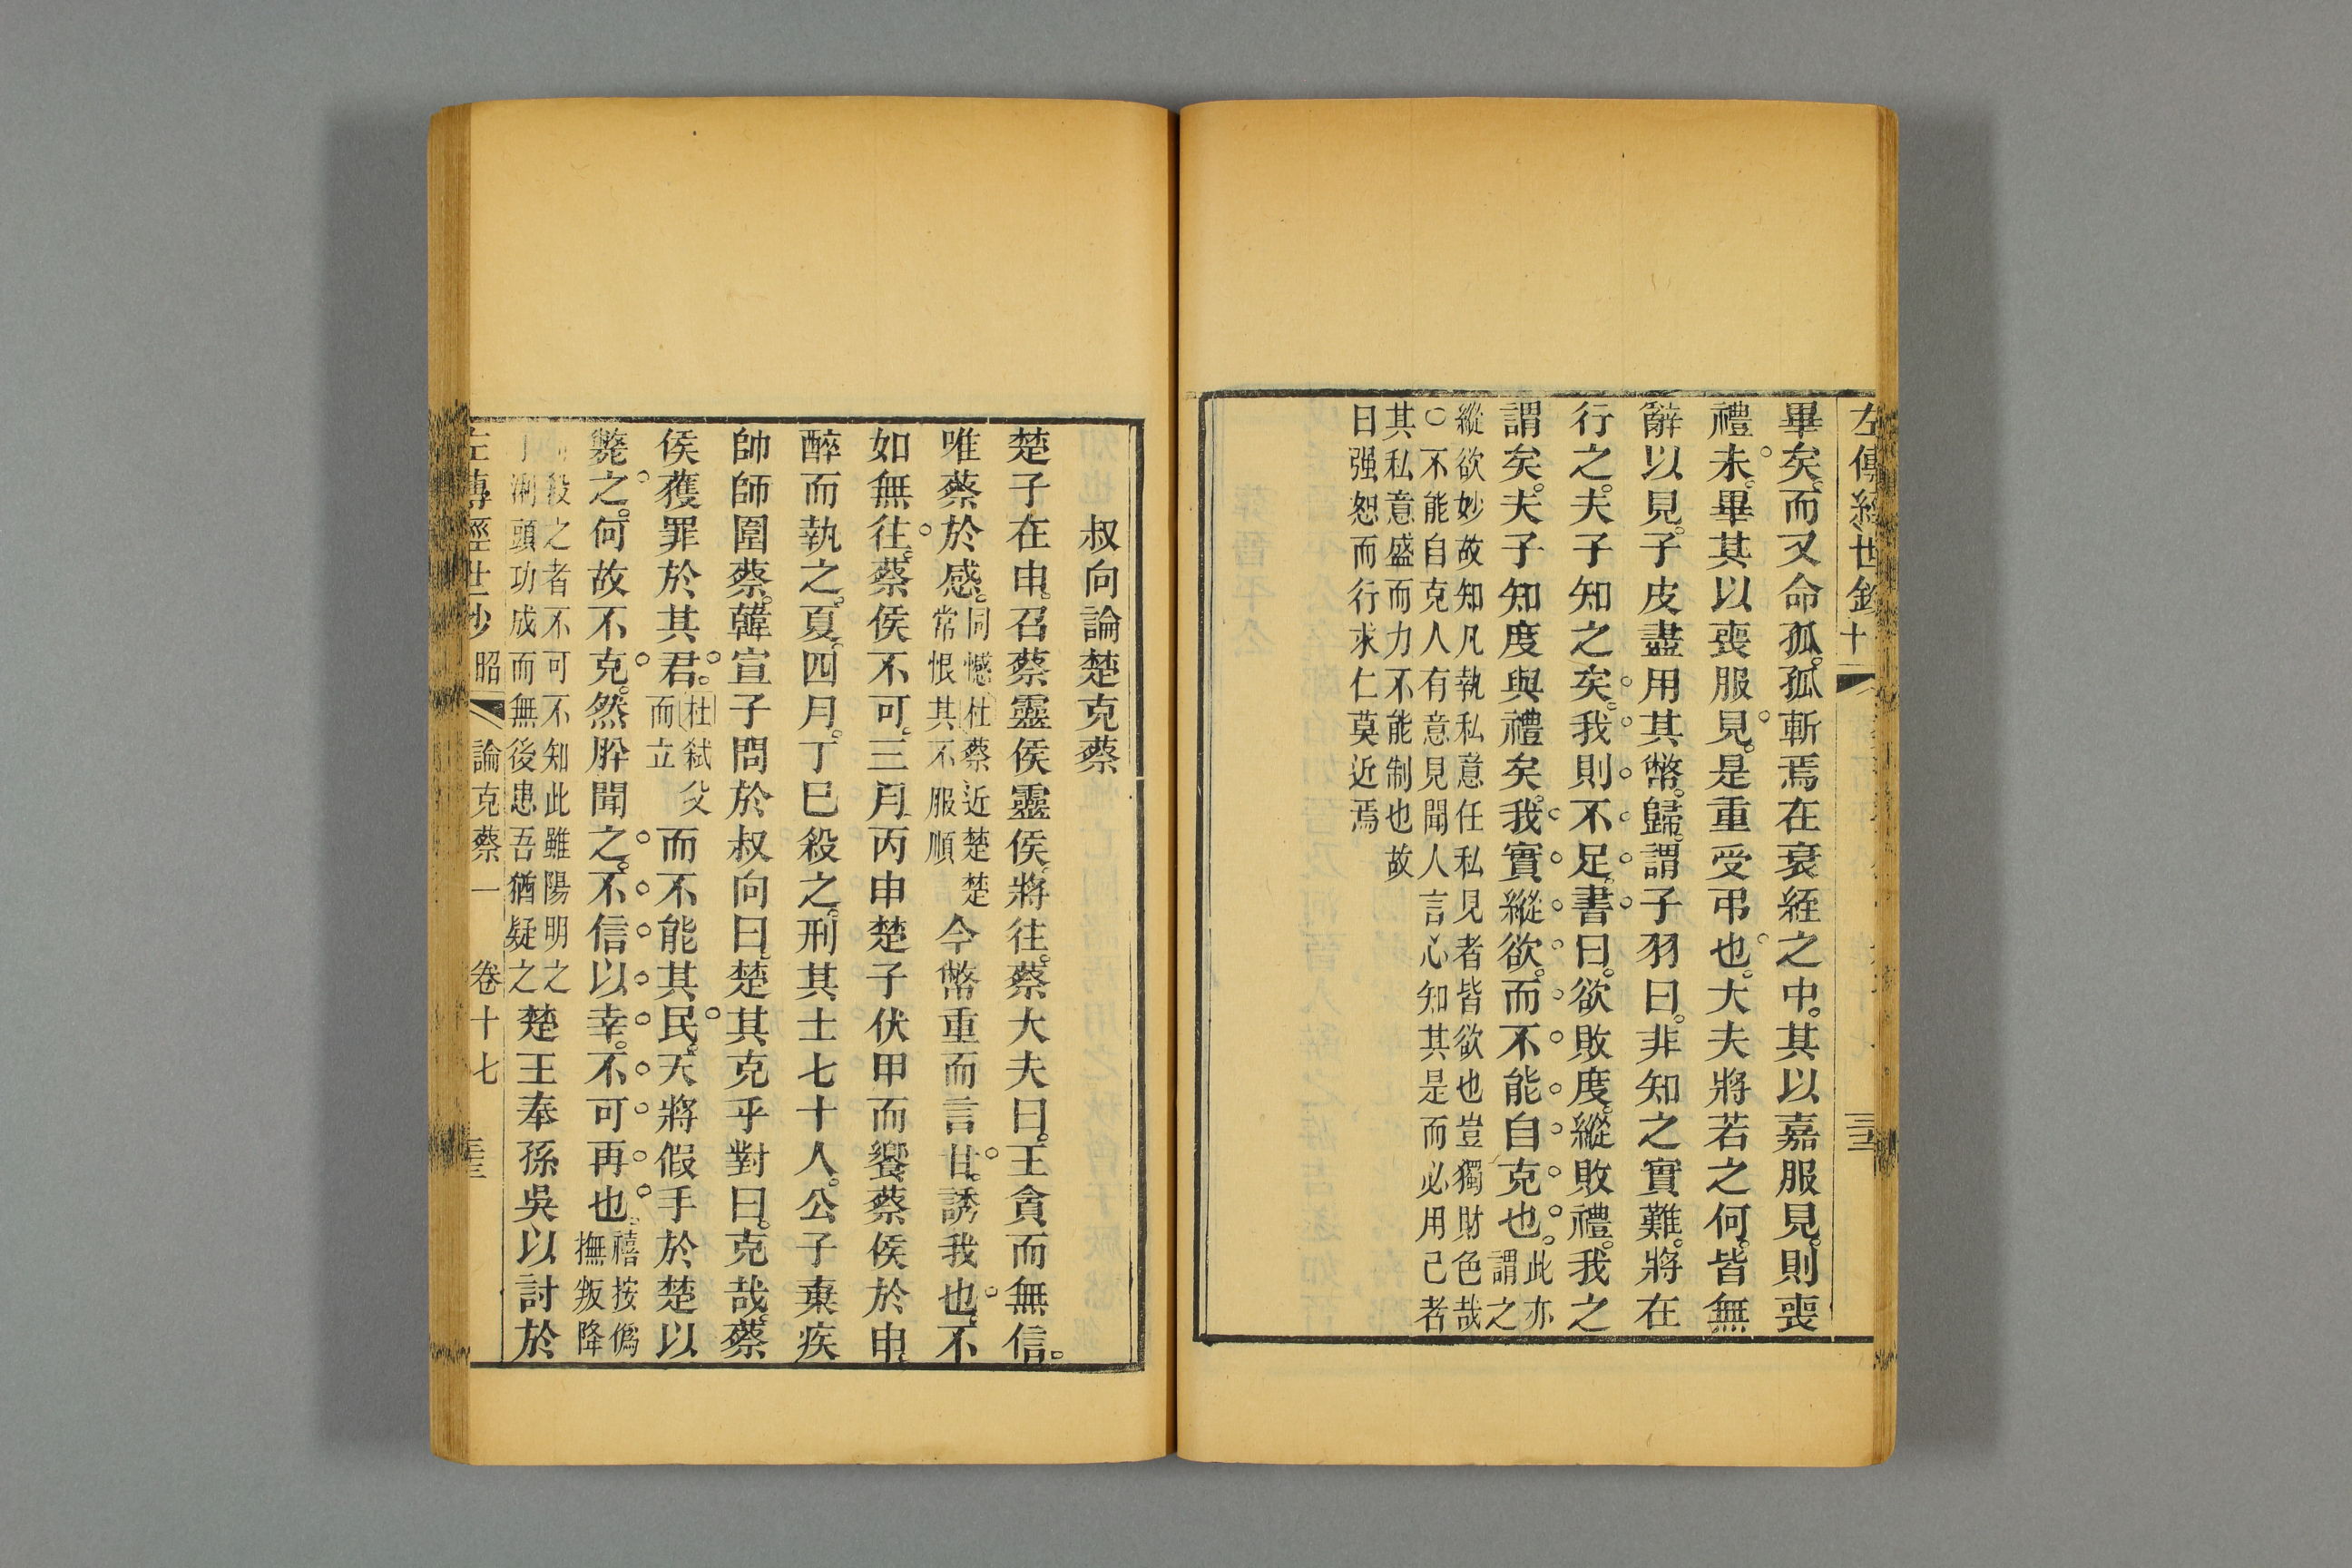 左傳經世鈔十
畢矣。而又命孤。孤斬焉在衰絰之中。其以嘉服見。則喪
禮未。畢其以喪服見。是重受弔也。大夫將若之何。皆無
辭以見。子皮盡用其幣。歸。謂子羽曰。非知之實難。將在
行之。夫子知之矣。我則不足。書曰。欲敗度。縱敗禮。我之
謂矣。夫子知度與禮矣。我實縱欲。而不能自克也。此亦
謂之
縱欲妙故知凡執私意任私見者皆欲也豈獨財色哉
○不能自克人有意見聞人言心知其是而必用己者
其私意盛而力不能制也故
曰强恕而行求仁莫近焉
叔向論楚克蔡
楚子在申。召蔡靈侯靈侯。將往。蔡大夫曰。王貪而無信。
唯蔡於感。同憾杜蔡近楚楚
常恨其不服順
今幣重而言甘。誘我也。不
如無往。蔡侯不可。三月丙申楚子伏甲而饗蔡侯於申。
醉而執之。夏。四月。丁巳殺之。刑其士七十人。公子棄疾
帥師圍蔡。韓宣子問於叔向曰。楚其克乎對曰。克哉。蔡
侯獲罪於其君。杜弑父
而立
而不能其民。天將假手於楚以
斃之。何故不克。然肸聞之。不信以幸。不可再也。禧按僞
撫叛降
殺之者不可不知此雖陽明之
浰頭功成而無後患吾猶疑之
楚王奉孫吳以討於
左傳經世鈔 昭 論克蔡一 卷十七